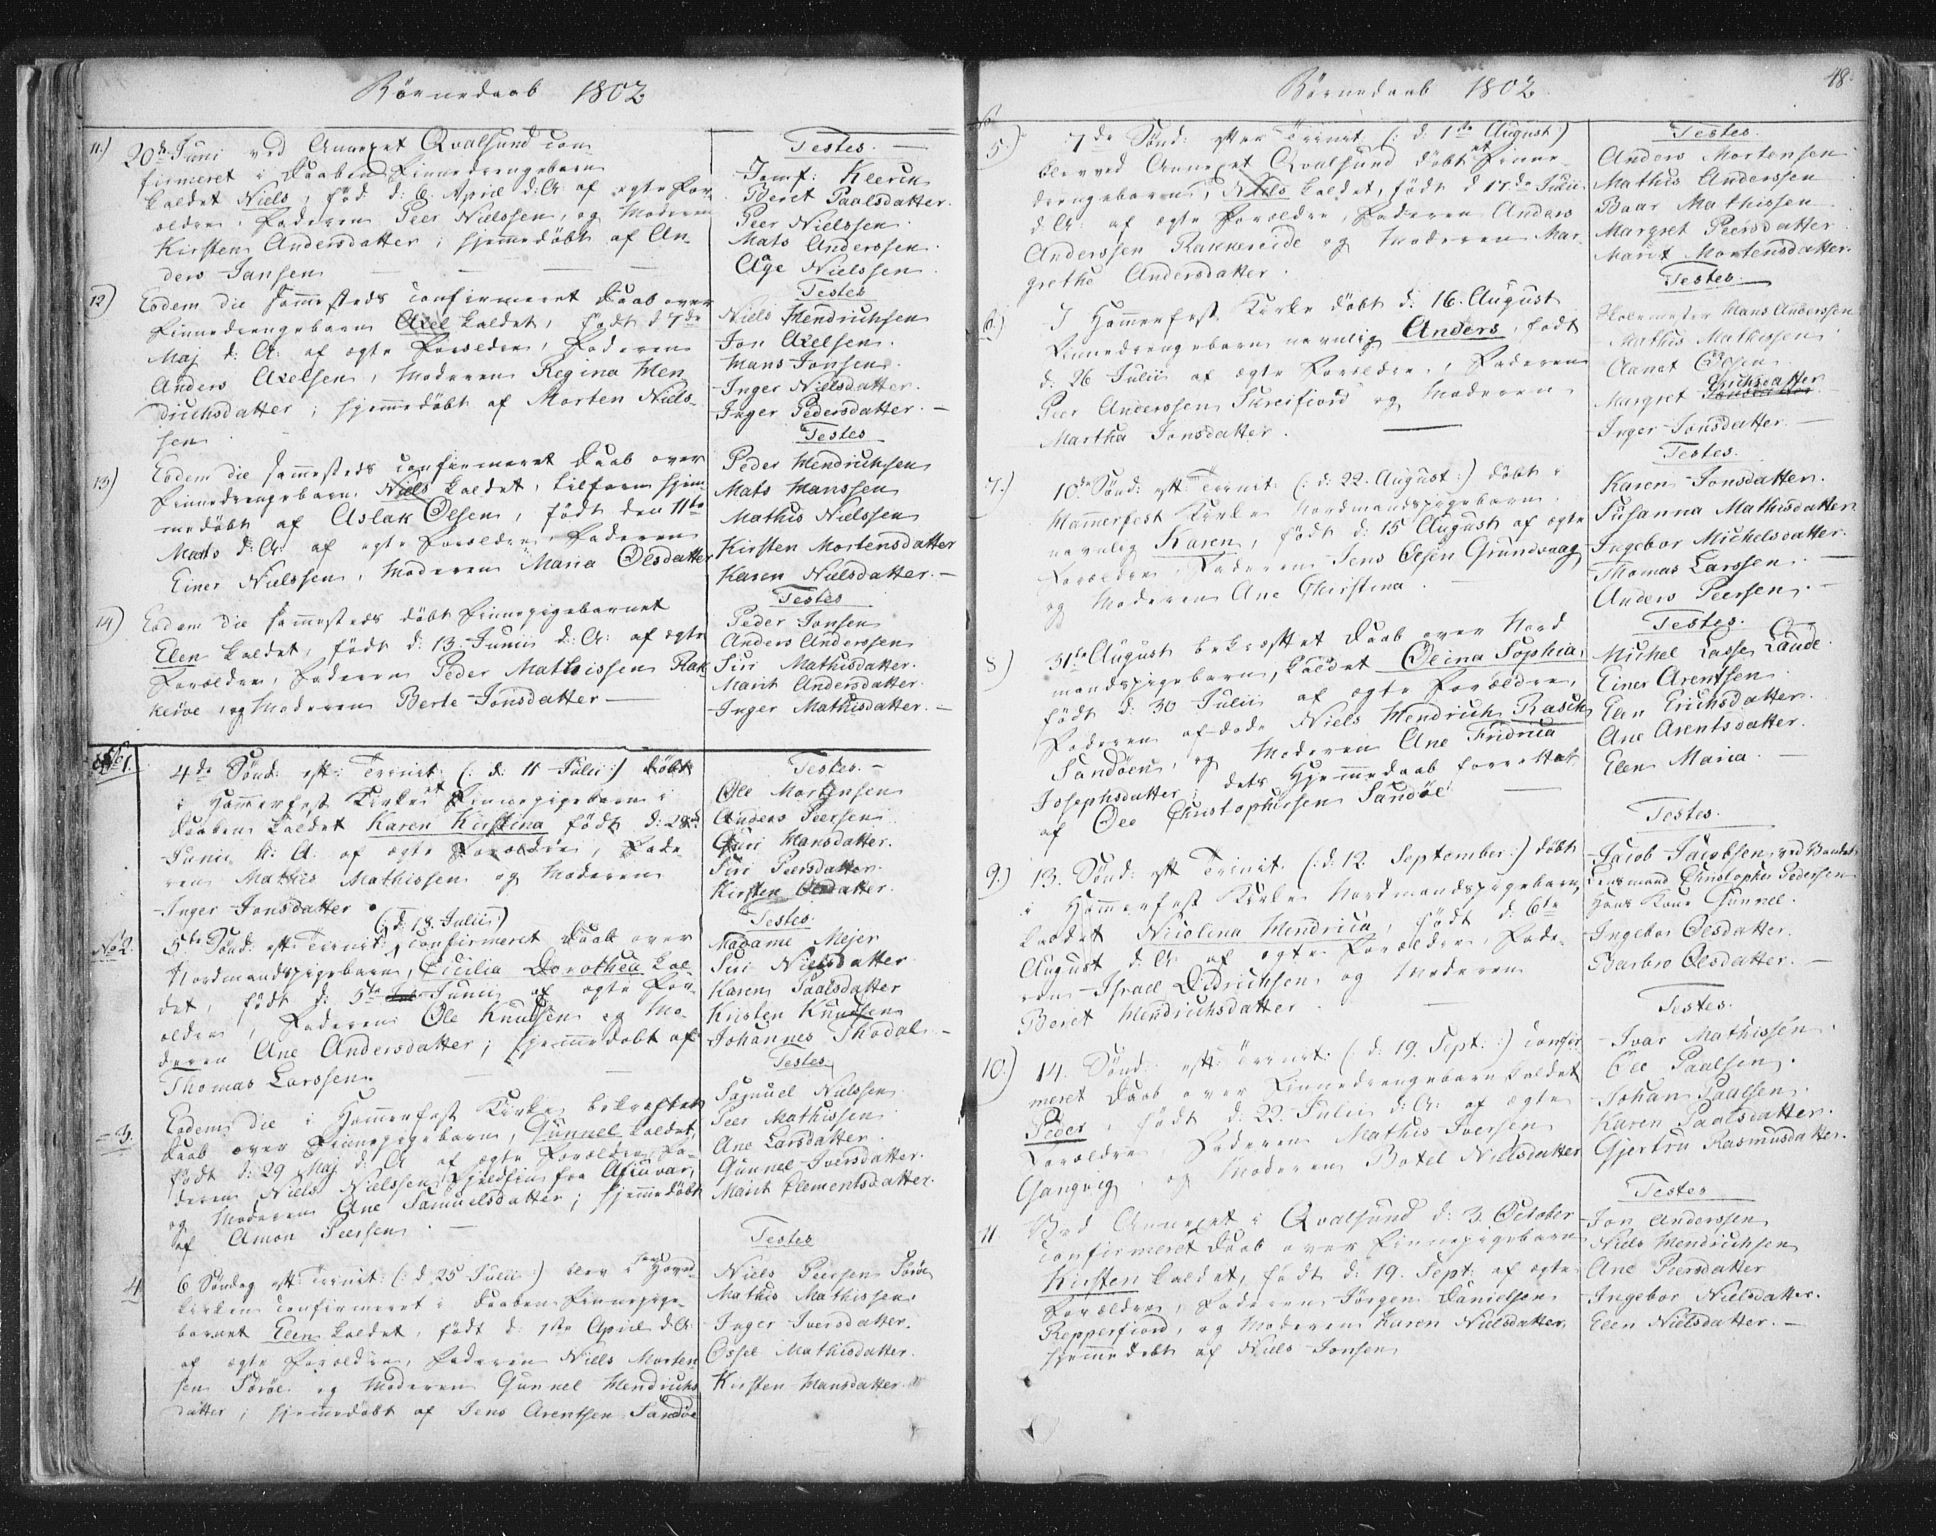 Børnedaab 1802
11.) 20de Juni ved Annexet Qvalsund con
firmeret i Daaben Finnedrengebarn
kaldet Niels, fød d: 6 April d:A: af ægte For
ældre, Faderen Peer Nielssen, og Moderen
Kirsten Andersdatter; hjemmedøbt af An-
ders Jansen
Testes.
Jomf: Klerck
Beret Paalsdatter.
Peer Nielssen
Mats Anderssen
Aage Nielssen
12) Eodem die sammesteds confirmeret Daab over
Finnedrengebarn Axel kaldet, født d 7de
Maj d: A: af ægte Forældre, Faderen
Anders Axelsen, Moderen Regina Hen
drichsdatter; hjemmedøbt af Morten Niels-
sen
Testes
Niels Hendrichsen
Jon Axelsen.
Hans Jonsen.
Inger Nielsdatter.
Inger Pedersdatter. —
13) Eodem die sammesteds confirmeret Daab over
Finnedrengebarn Niels kaldet, tilforn hjem-
medøbt af Aslak Olsen, født den 11te
Marts d:A: af ægte Forældre Faderen
Einer Nielssen, Moderen Maria Olsdatter
Testes
Peder Hendrichsen
Mats Hanssen
Mathis Nielssen
Kirsten Mortensdatter
Karen Nielsdatter. —
14) Eodem die sammesteds døbt Finnepigebarnet
Elen kaldet, født d: 13 Junii d:A: af ægte
Forældre, Faderen Peder Mathissen Rak
keröe, og Moderen Berte Jonsdatter —
Testes
Peder Jonsen
Anders Anderssen
Siri Mathisdatter.
Marit Andersdatter.
Inger Mathisdatter. —
No 1. 4de Sønd: eft: Trinit: (: d: 11 Julii :) døbt
i Hammerfest Kirke et Finnepigebarn i
Daaben kaldet Karen Kirstina født d: 28de
Junii h: A: af ægte Forældre, Fade-
ren Mathis Mathissen og Moderen
Inger Jonsdatter
Testes. —
Ole Mortensen
Anders Peersen
Guri Hansdatter.
Siri Peersdatter.
Kirsten Olsdatter.
(: d: 18. Julii :)
No 2. 5te Sønd: eft: Trinit: confirmeret Daab over
Nordmandspigebarn, Cecilia Dorothea kal-
det, født d: 5te Junii af ægte For-
ældre, Faderen Ole Knudsen og Mo-
deren Ane Andersdatter; hjemmedøbt af
Thomas Larssen.
Testes.
Madame Mejer
Siri Nielsdatter
Karen Paalsdatter
Kristen Knudsen
Johannes Thodal. —
- 3. Eodem die i Hammerfest Kirke bekræftet
Daab over Finnepigebarn, Gunnel kaldet,
født d: 29 Maj d: A: af ægte Forældre Fa-
deren Niels Nielssen, Fjeldfin fra Afiuvar,
og Moderen Ane Samuelsdatter; hjemmedøbt
af Amon Peersen. —
Testes
Samuel Nielssen
Peer Mathissen
Ane Larsdatter.
Gunnel Iversdatter.
Marit Clementsdatter.
4 6 Søndag eft: Trinit: (: d 25 Julii :) blev i her Hoved-
kirken confirmeret i Daaben Finnepige-
barnet Elen kaldet, født d: 1ste April d:A:
af ægte Forældre, Faderen Niels Morten-
sen Sørøe og Moderen Gunnel Hendrichs
datter; hjemmedøbt af Jens Arentsen Sandøe
Testes
Niels Peersen Sørøe
Mathis Mathissen.
Inger Iversdatter.
Ossel Mathisdatter.
Kirsten Hansdatter.
Børnedaab 1802.
48.
5) 7de Sønd: efter Trinit: (: d: 1ste August)
blev ved Annexet Qvalsund døbt et Finne-
drengebarn, Nils kaldet, født d 17de Julii
d:A: af ægte Forældre, Faderen Anders
Anderssen Rakkereide og Moderen Mar-
grethe Andersdatter.
Testes.
Anders Mortensen
Mathis Anderssen
Baar Mathissen
Margret Peersdatter
Marit Mortensdatter.
6.) I Hammerfest Kirke døbt d: 16. August
Finnedrengebarn navnlig Anders, født
d: 26 Julii af ægte Forældre, Faderen
Peer Anderssen Sureifiord og Moderen
Martha Jonsdatter.
Testes
Skolemester Hans Anderssen
Mathis Mathissen
Aanet Olsen
Margret Erichsdatter
Inger Jonsdatter. —
7.) 10de Sønd: eft: Trinit: (: d: 22. August :) døbt i
Hammerfest Kirke Nordmandspigebarn
navnlig Karen, født d: 15 August af ægte
Forældre, Faderen Jens Olsen Grundvaag
og Moderen Ane Christina. —
Testes.
Karen Jonsdatter.
Susanna Mathisdatter
Ingebor Michelsdatter.
Thomas Larssen
Anders Peersen. —
8) 31te August bekræftet Daab over Nord
mandspigebarn, kaldet Olina Sophia,
født d: 30 Julii af ægte Forældre,
Faderen afdøde Niels Hendrich Rasch
Sandöen, og Moderen Ane Fridrica
Josephsdatter; dets Hjemmedaab forrettet
af Ole Christophersen Sandöe
Testes.
Michel Lasse Laude.
Einer Arentsen
Elen Erichsdatter.
Ane Arentsdatter.
Elen Maria. —
9.) 13. Sønd: eft Trinit: (: d. 12 September :) døbt
i Hammerfest Kirke Nordmandspigebarn,
kaldet Nicolina Hendrica, født d: 6te
August d:A: af ægte Forældre, Fade-
ren Israel Didrichsen og Moderen
Beret Hendrichsdatter.
Testes.
Jacob Jacobsen ved Bandet
Lensmand Christopher Pedersen
Hans Kone Gunnel.
Ingebor Olsdatter.
Barbro Olsdatter. —
10.) 14. Sønd: eft: Trinit: (: d: 19. Sept: :) confir
meret Daab over Finnedrengebarn kaldet
Peder, født d: 22. Julii d:A: af ægte
Forældre Faderen Mathis Iversen
Gangvig, og Moderen Botel Nielsdatter
Testes.
Ivar Mathissen.
Ole Paalsen.
Johan Paalsen.
Karen Paalsdatter.
Gjertru Rasmusdatter.
11 Ved Annexet i Qvalsund d: 3. October
confirmeret Daab over Finnepigebarn
Kirsten kaldet, født d: 19. Sept: af ægte
Forældre, Faderen Jörgen Danielsen
Repperfiord, og Moderen Karen Nielsdatter,
hjemmedøbt af Niels Jonsen
Testes
Jon Anderssen
Niels Hendrichsen
Ane Peersdatter
Ingebor Nielsdatter.
Elen Nielsdatter. —